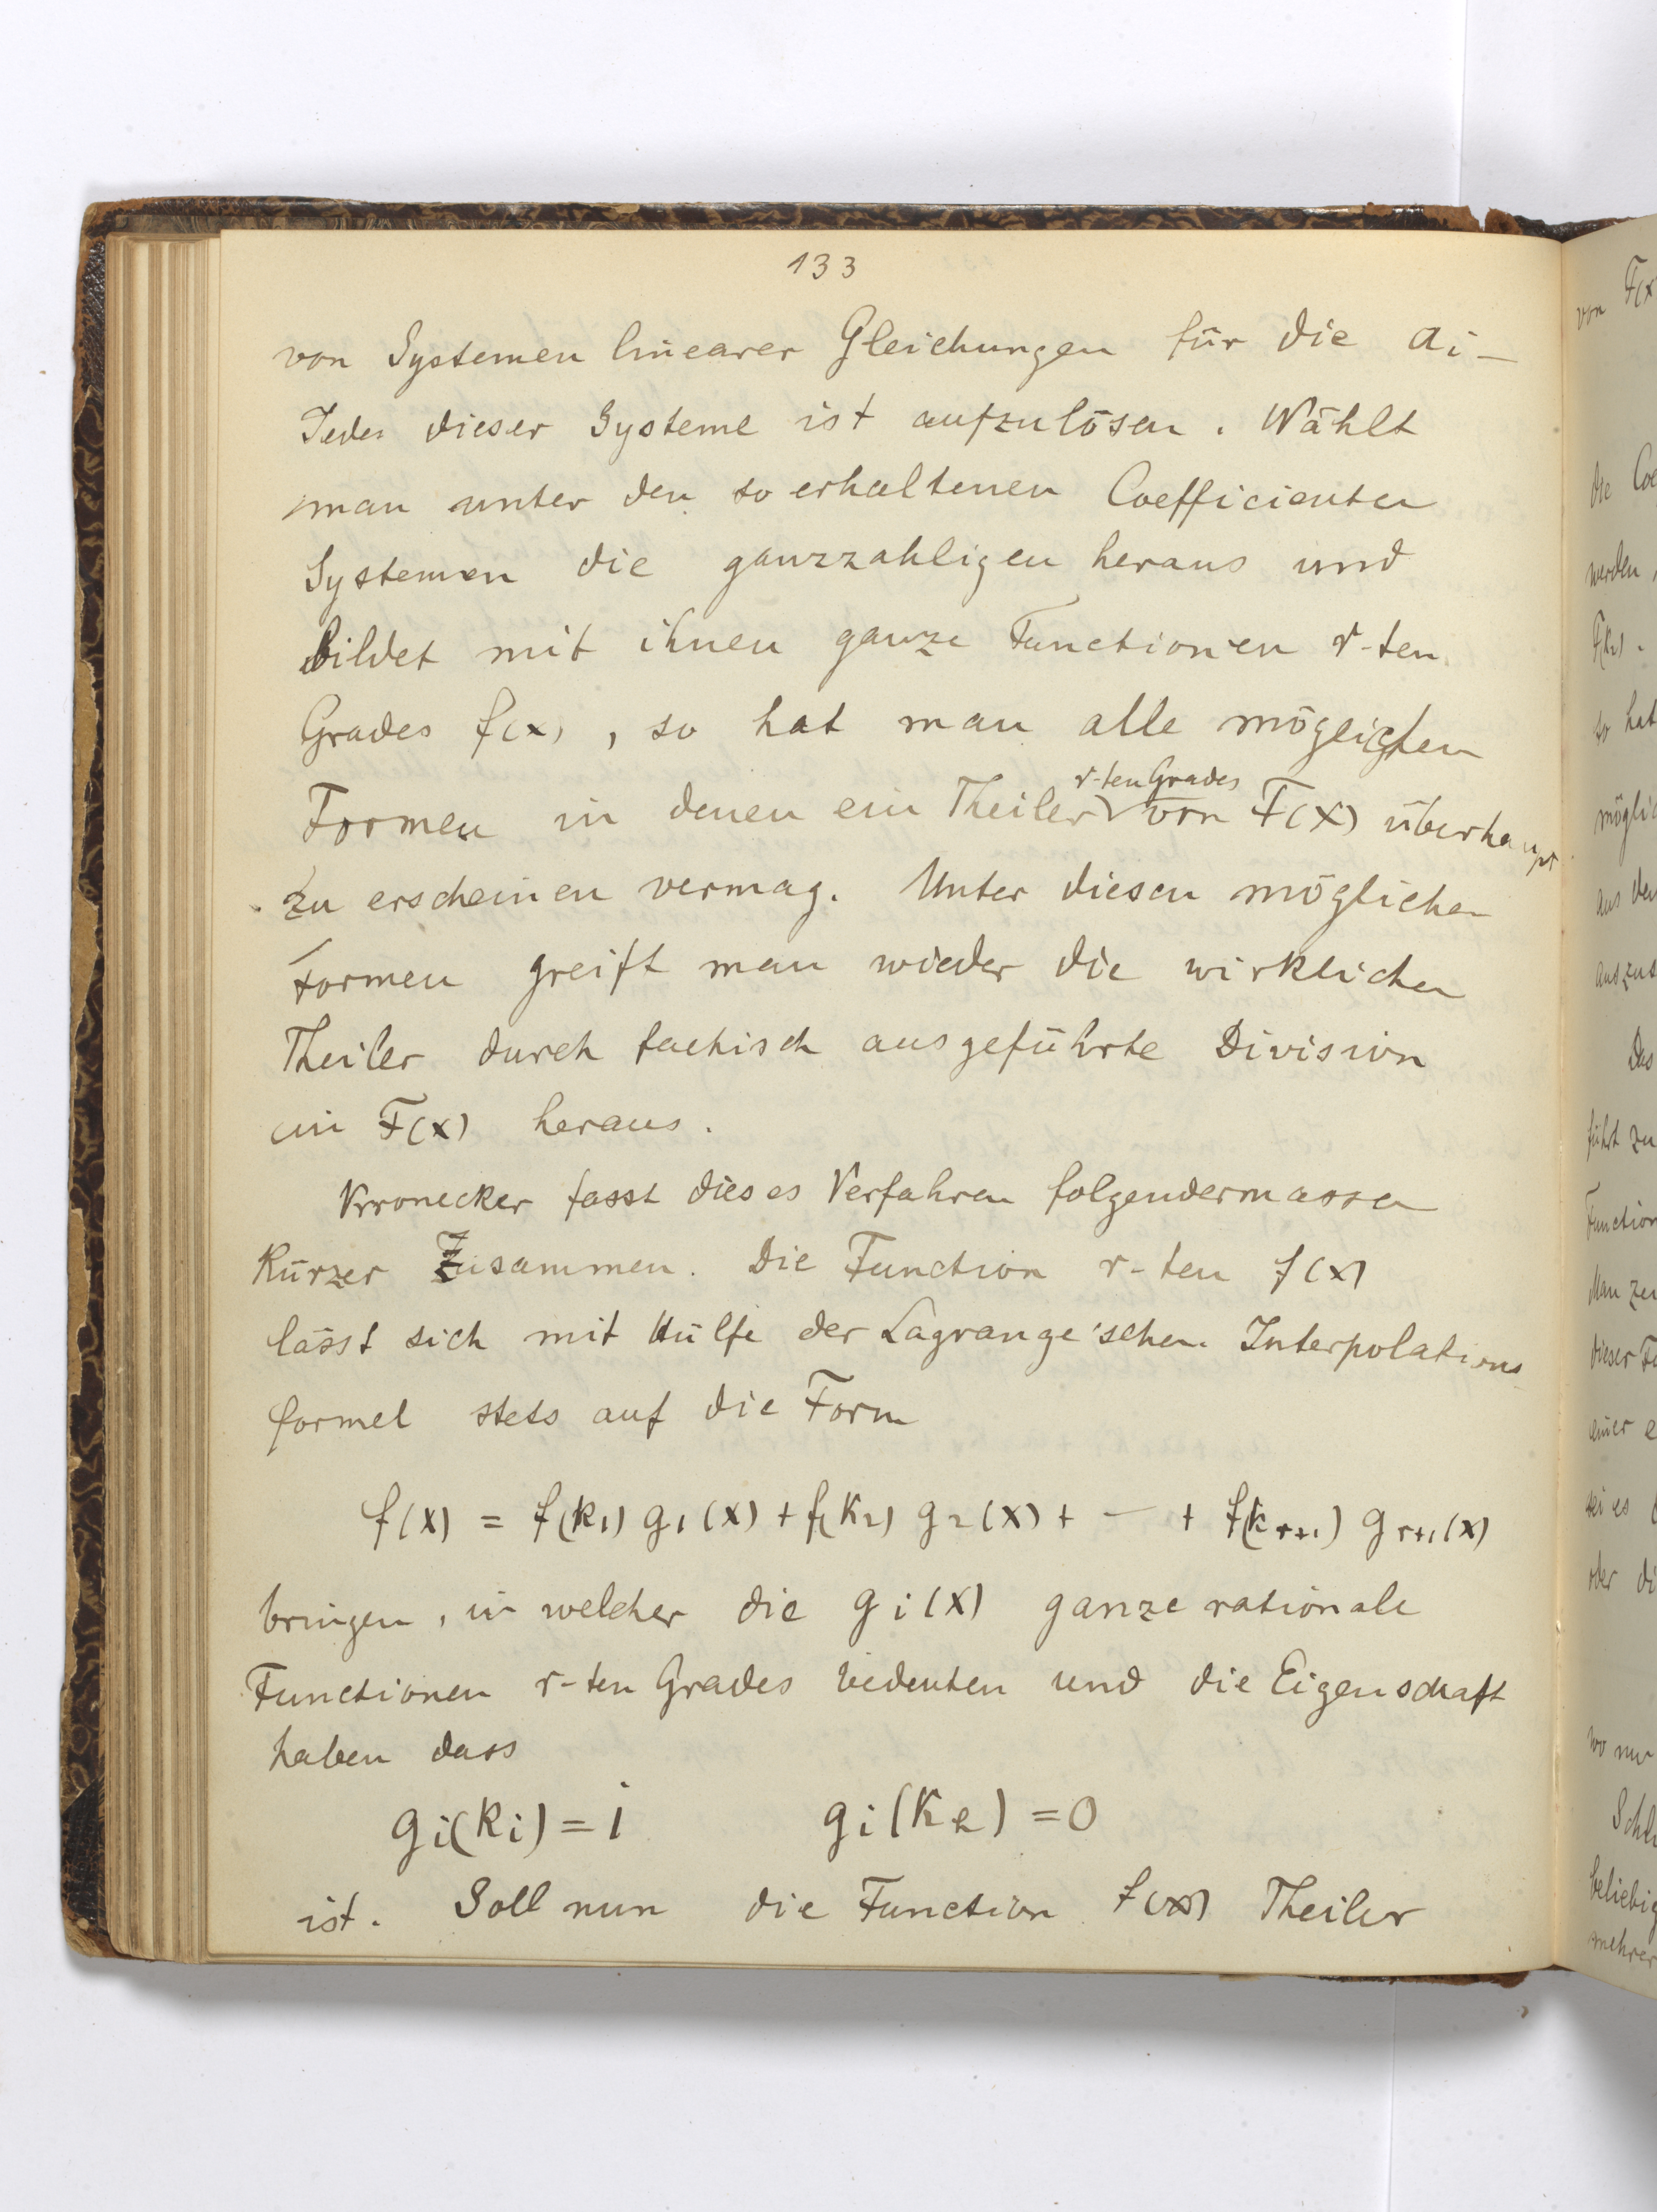 133
von Systemen linearer Gleichungen für die ai –
Jedes dieser Systeme ist aufzulösen. Wählt
man unter den so erhaltenen Coefficienten
Systemen die ganzzahligen heraus und
bildet mit ihnen ganze Functionen r-ten
Grades f(x), so hat man alle möglichen
r-ten Grades
Formen in denen ein Theiler von F(x) überhaupt
zu erscheinen vermag. Unter diesen möglichen
Formen greift man wieder die wirklichen
Theiler durch factisch ausgeführte Division
in F(x) heraus.
Kronecker fasst dieses Verfahren folgendermassen
kürzer zusammen. Die Function r-ten f(x)
lässt sich mit Hülfe der Lagrange'schen Interpolations
formel stets auf die Form
f(x) = f(k1) g1(x) + f(k2) g2(x) + — + f(kr+1) gr+1(x)
bringen, in welcher die gi(x) ganze rationale
Functionen r-ten Grades bedeuten und die Eigenschaft
haben dass
gi(ki) = 1 gi(ke) = 0
ist. Soll nun die Function f(x) Theiler
von F(x
die Coe
werden,
F(k2).
so hat
möglic
aus den
auszus
Das
führt zu
Function
Man zei
dieser Fu
einer e
sei es
oder di
wo nur
Schl
beliebig
mehrer